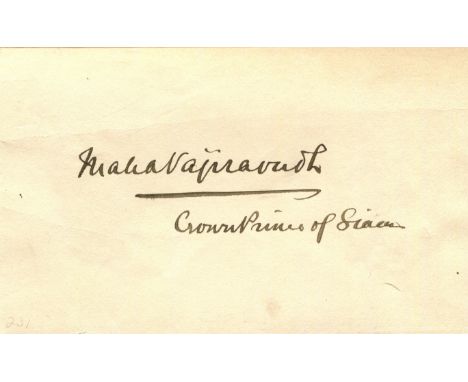 Maha Vajiravudh
Crown Prince of Siam
231